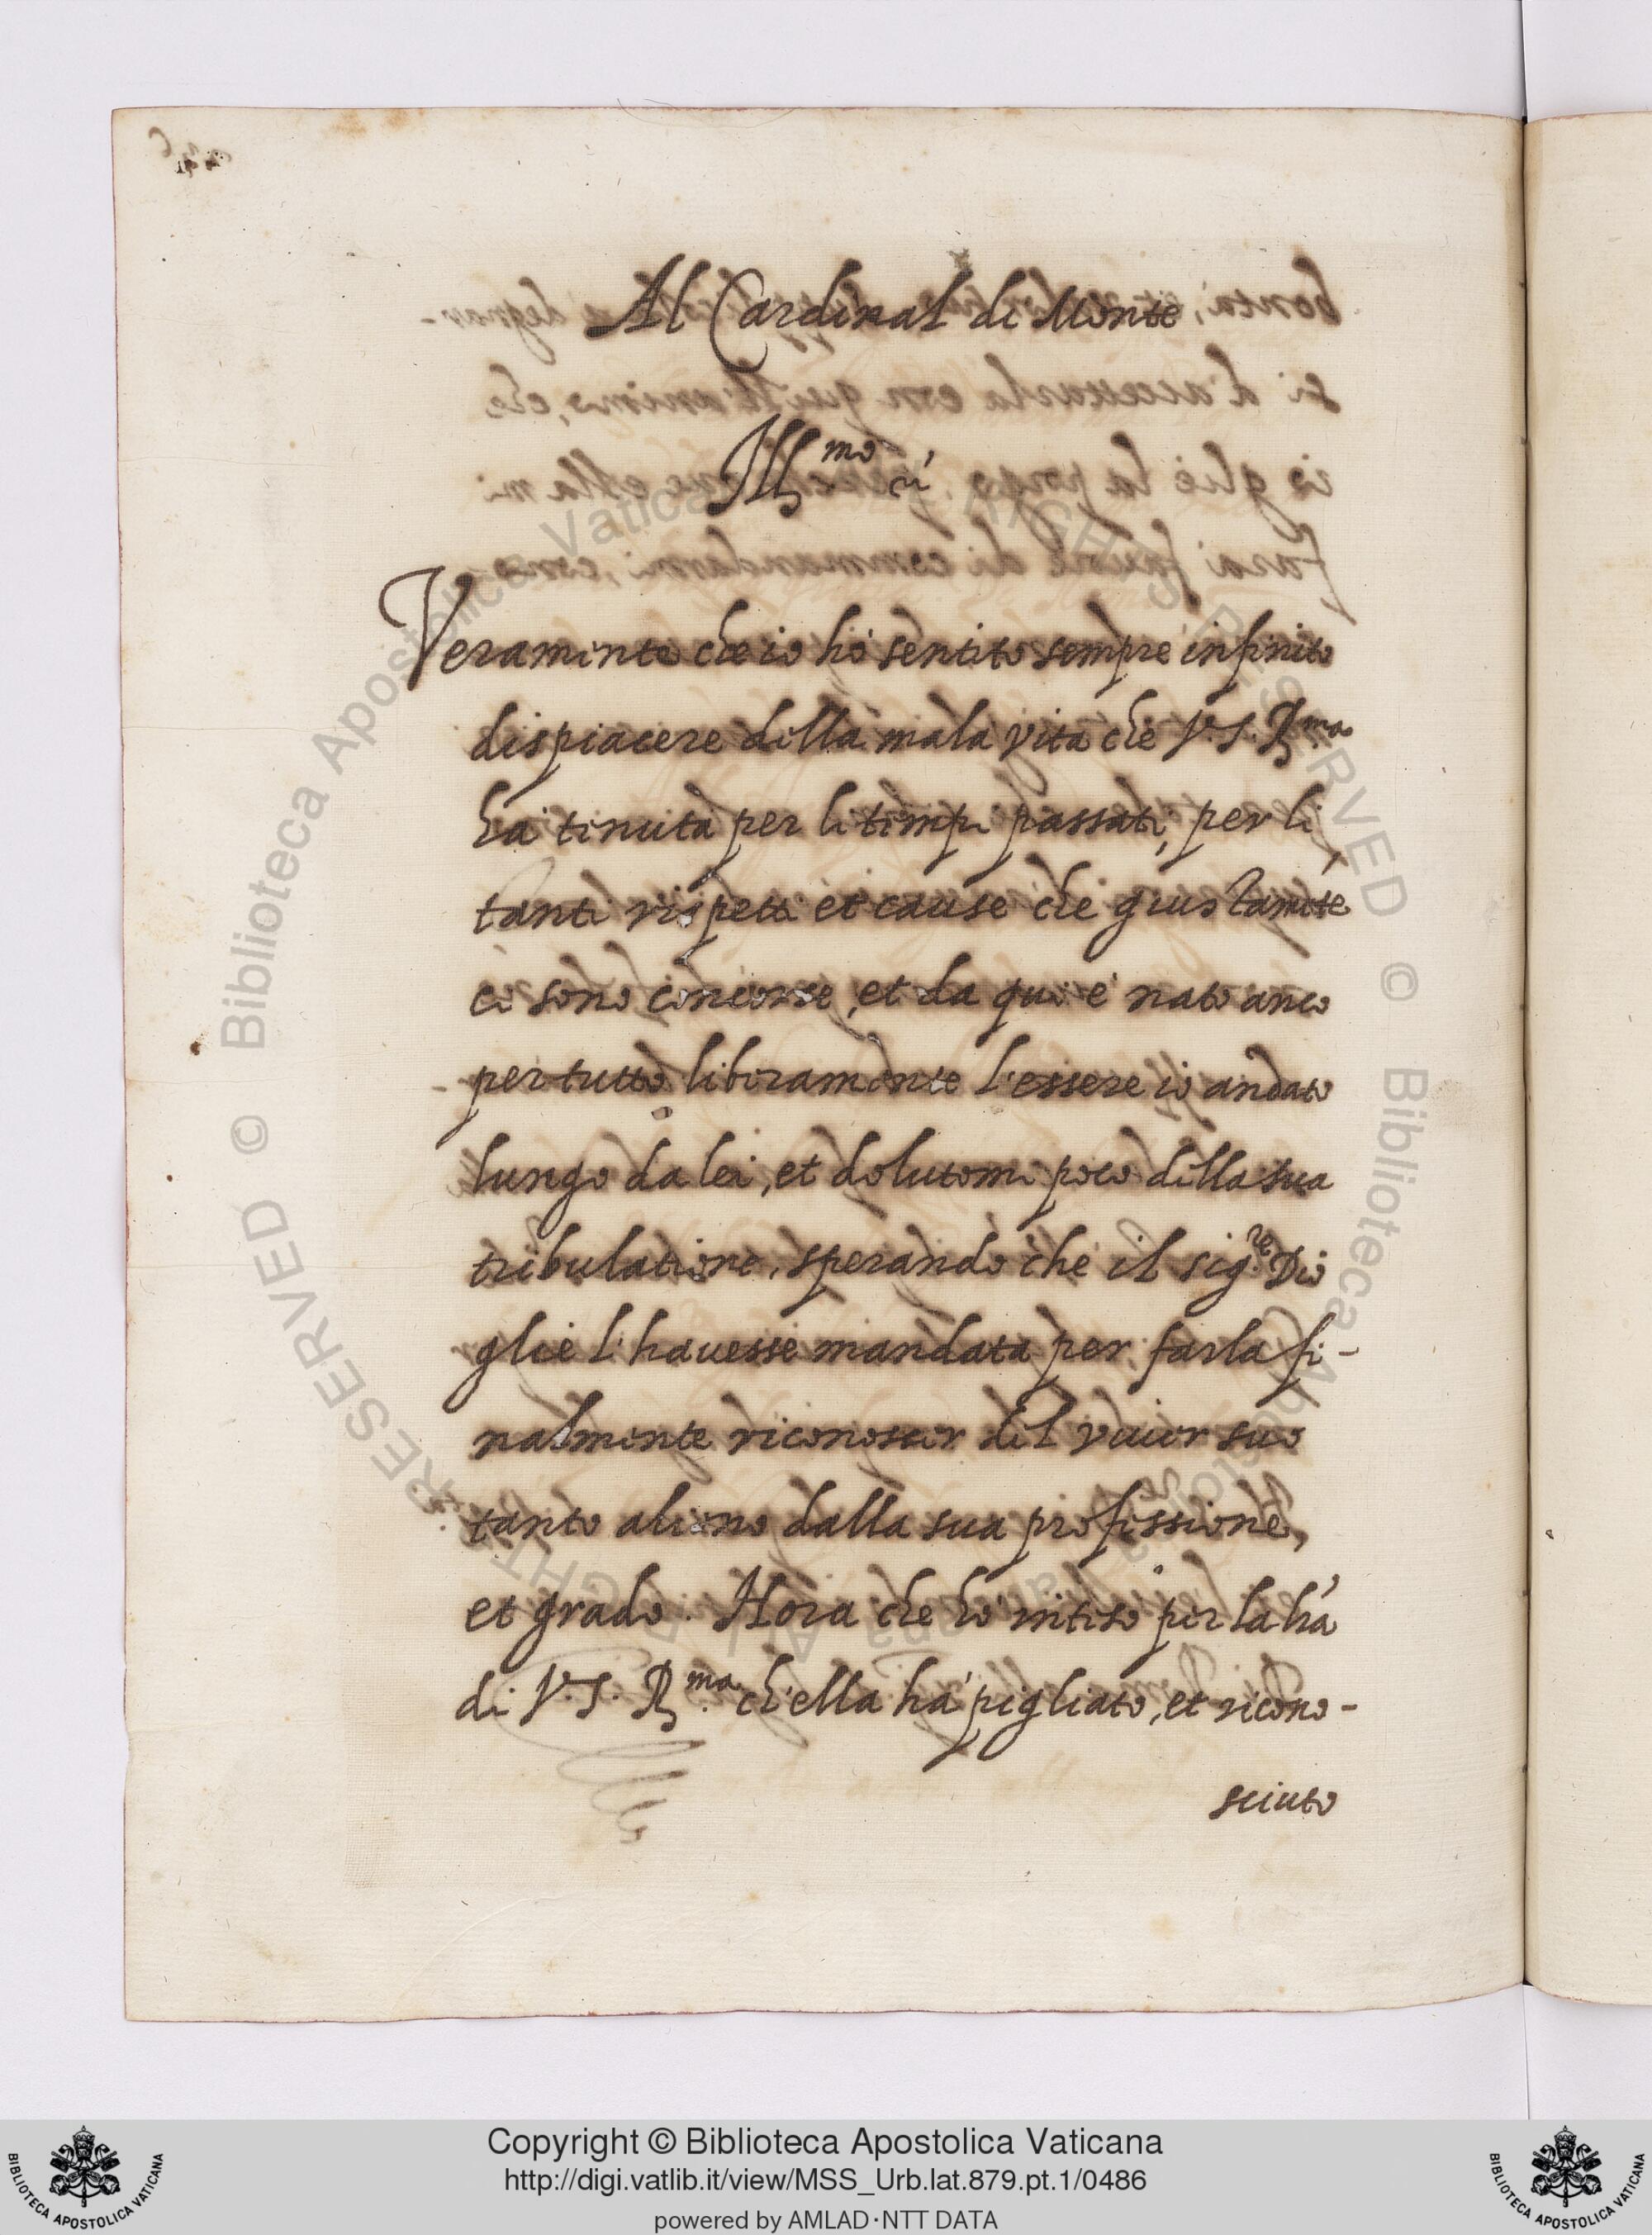 Al Cardinal di Monte
Ill.mo
Veramente che io hò sentito sempre infinito
dispiacere della mala vita che V.S. R.ma
ha tenuta per li tempi passati, per li
tanti rispetti et cause che giustamẽte
ci sono concorse, et da qui è nato anco
per tutto liberamente l'essere io andato
lungo da lei, et dolutomi poco della sua
tribulatione, sperando che il sig.re Dio
glie l'hauesse mandata per farla fi-
nalmente riconoscer del viuer suo
tanto alieno dalla sua professione,
et grado. Hora che hò inteso per la fra
di V.S. R.ma ch'ella hà pigliato, et ricono-
sciuto
© Biblioteca Apostolica Vaticana
RIGHTS RESERVED
Copyright © Biblioteca Apostolica Vaticana
http://digi.vatlib.it/view/MSS_Urb.lat.879.pt.1/0486
powered by AMLAD·NTT DATA
BIBLIOTECA APOSTOLICA VATICANA
BIBLIOTECA APOSTOLICA VATICANA